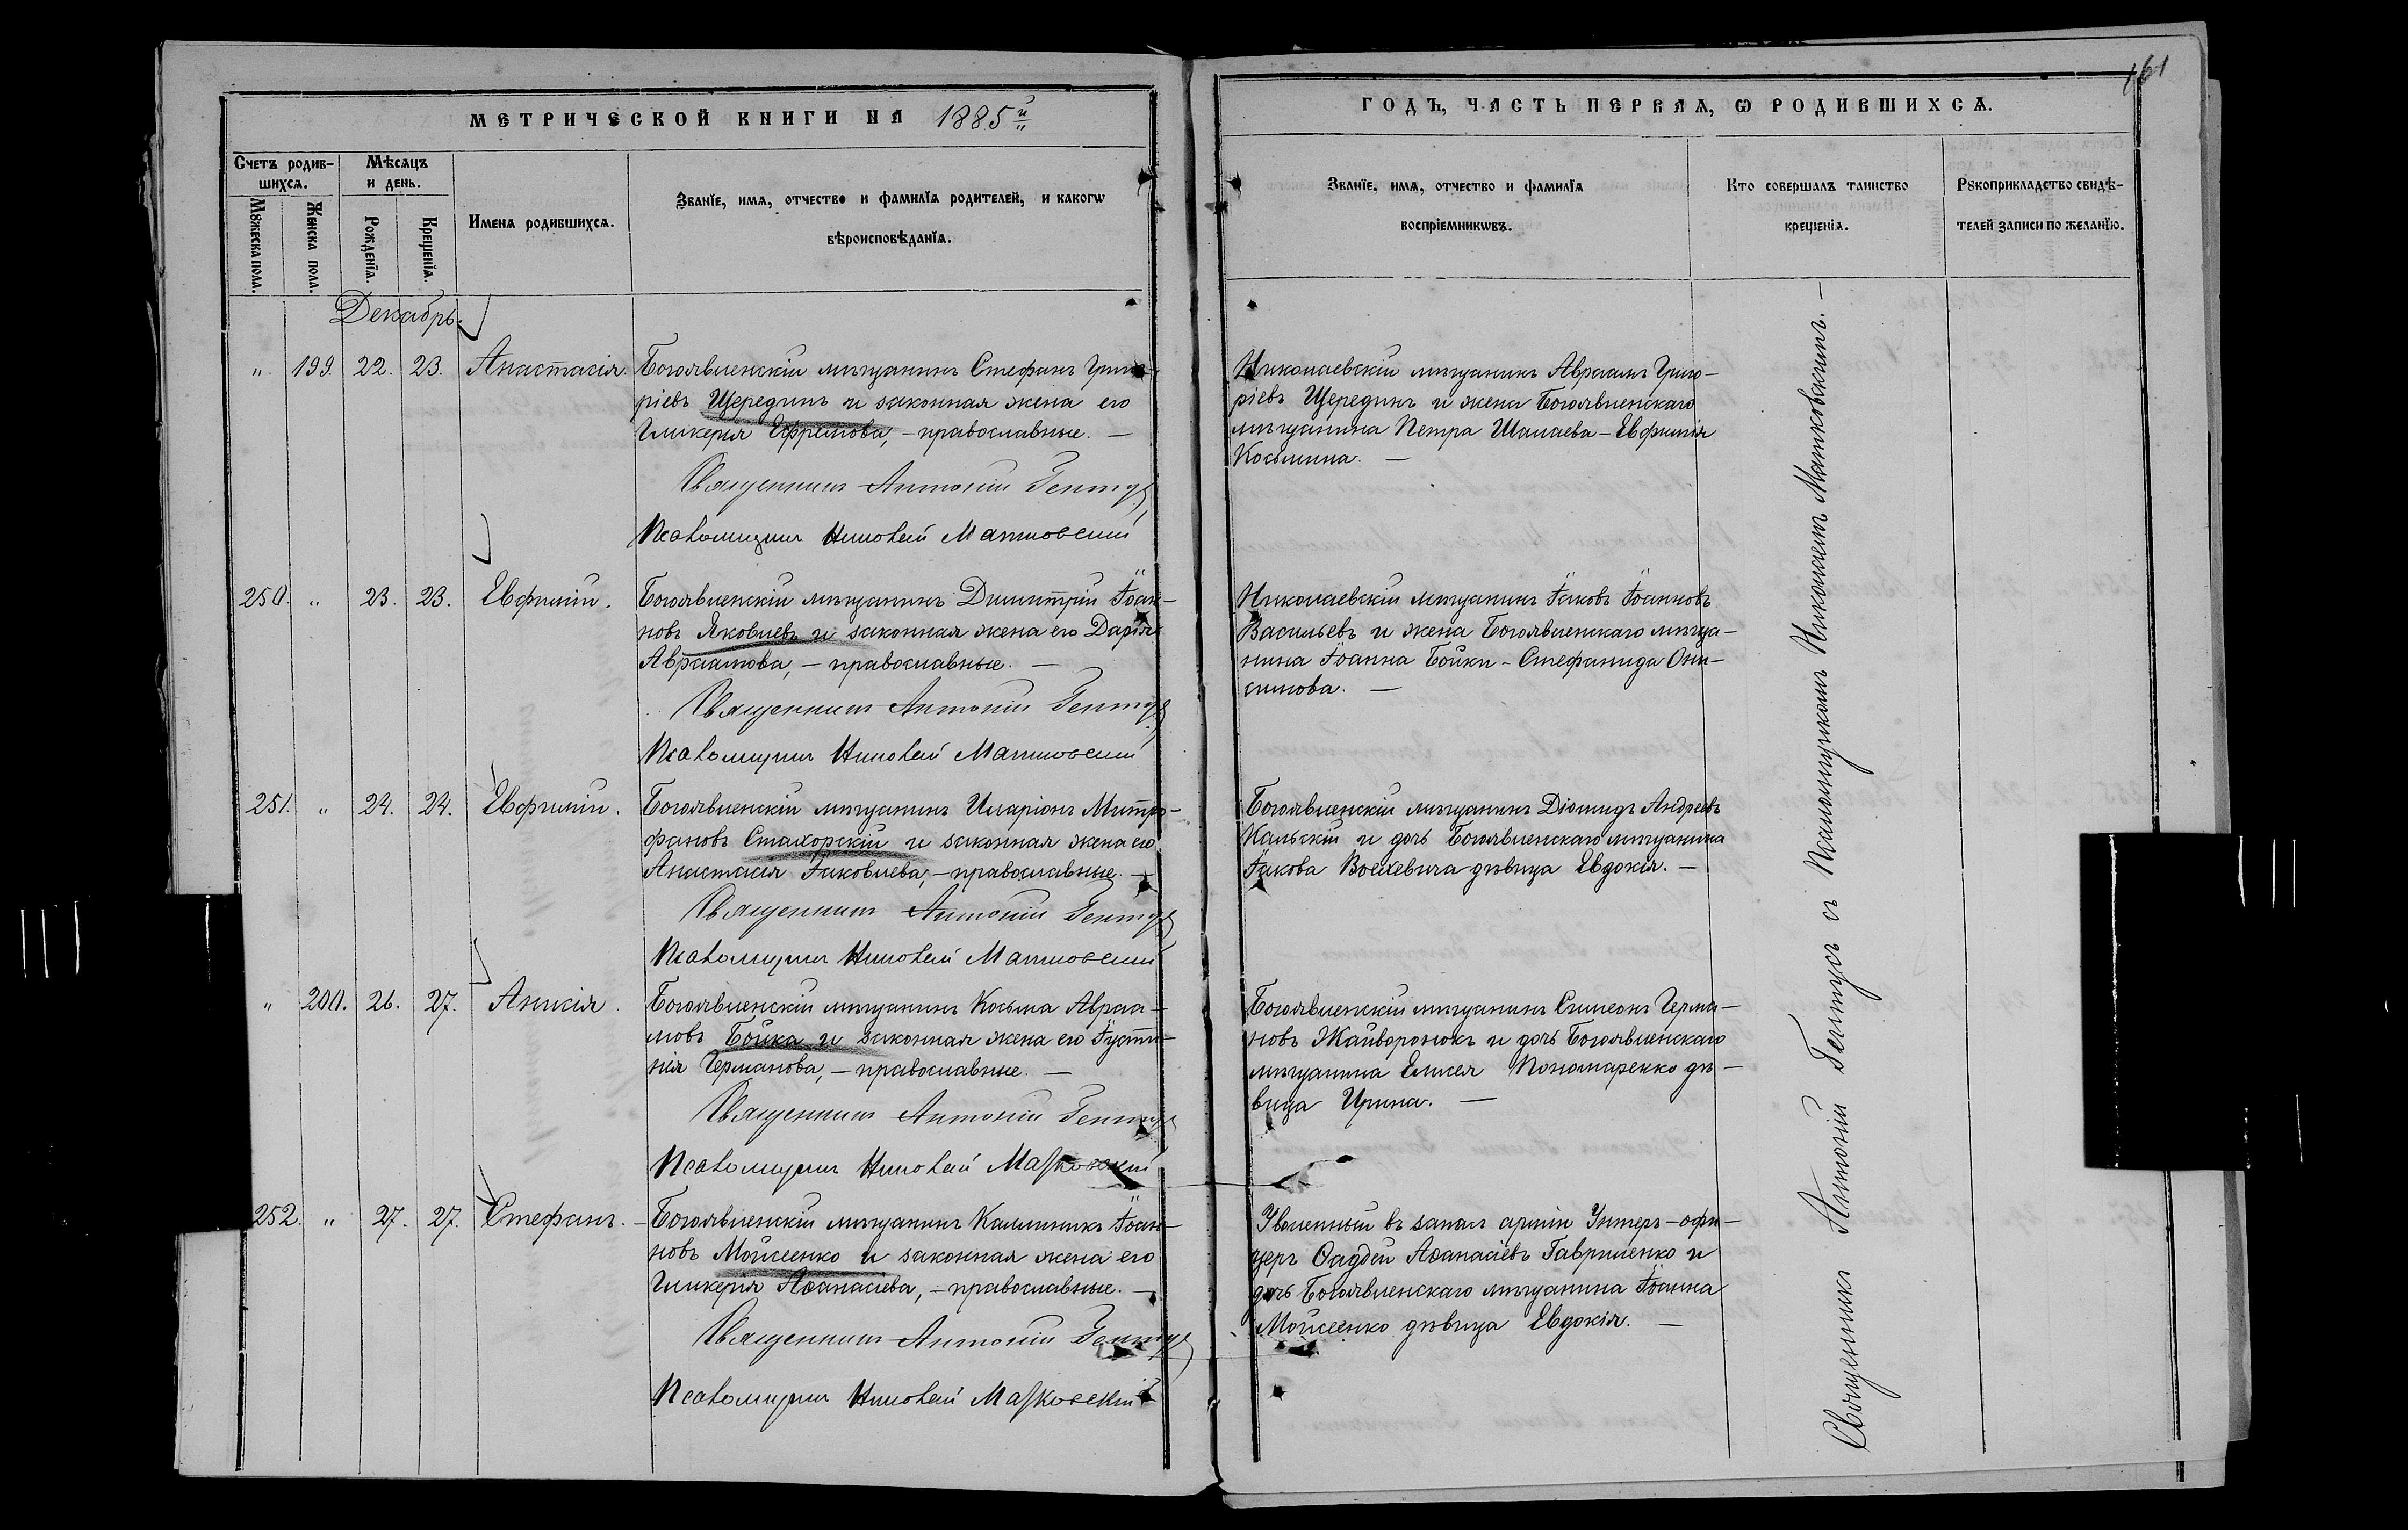 161
МЕТРИЧЕСКОЙ КНИГИ НА 1885й
ГОДЪ, ЧАСТЬ ПЕРВАЯ, Ѡ РОДИВШИХСЯ.
Счетъ родив-
шихся.
Мѣсяцъ
и день.
Мꙋжеска пола.
Женска пола.
Рожденїя.
Крещенїя.
Имена родившихся.
Званїе, имя, отчество и фамилїя родителей, и какогѡ
вѣроисповѣданїя.
Званїе, имя, отчество и фамилїя
воспрїемникѡвъ.
Кто совершалъ таинство
крещенїя.
Рꙋкоприкладство свидѣ-
телей записи по желанїю.
Декабрь
" 199. 22. 23. Анастасія.
Богоявленскій мѣщанинъ Стефанъ Григо-
ріевъ Щерединъ и законная жена его
Гликерія Ефремова, – православные. –
Священникъ Антоній Гентус
Псаломщикъ Николай Матковский
Николаевскій мѣщанинъ Авраамъ Григо-
ріевъ Щерединъ и жена Богоявленскаго
мѣщанина Петра Шалаева – Евфимія
Косьмина. –
250. " 23. 23. Евфимій.
Богоявленскій мѣщанинъ Димитрій Іоан-
новъ Яковлевъ и законная жена его Дарія
Авраамова, – православные. –
Священникъ Антоній Гентус
Псаломщикъ Николай Матковский
Николаевскій мѣщанинъ Іаковъ Іоанновъ
Васильевъ и жена Богоявленскаго мѣща-
нина Іоанна Бойки – Стефанида Они-
симова. –
251. " 24. 24. Евфимій.
Богоявленскій мѣщанинъ Иларіонъ Митро-
фановъ Стахорскій и законная жена его
Анастасія Іаковлева, – православные. –
Священникъ Антоній Гентус
Псаломщикъ Николай Матковский
Богоявленскій мѣщанинъ Діомидъ Андреевъ
Кальскій и дочь Богоявленскаго мѣщанина
Іакова дѣвица Евдокія. –
" 200. 26. 27. Анисія.
Богоявленскій мѣщанинъ Косьма Авраа-
мовъ Бойка и законная жена его Іусти-
нія Германова, – православные. –
Священникъ Антоній Гентус
Псаломщикъ Николай Матковский
Богоявленскій мѣщанинъ Симеонъ Герма-
новъ Жайворонокъ и дочь Богоявленскаго
мѣщанина Елисея Пономаренко дѣ-
вица Ирина. –
252. " 27. 27. Стефанъ. –
Богоявленскій мѣщанинъ Каллиникъ Іоан-
новъ Мойсеенко и законная жена его
Гликерія Аѳанасіева, – православные. –
Священникъ Антоній Гентус
Псаломщикъ Николай Матковскій
Уволенный въ запасъ арміи Унтеръ-офи-
церъ Ѳаддей Аѳанасіевъ Гавриленко и
дочь Богоявленскаго мѣщанина Іоанна
Мойсеенко дѣвица Евдокія. –
Священникъ Антоній Гентусъ съ Псаломщикомъ Николаемъ Матковскимъ. –